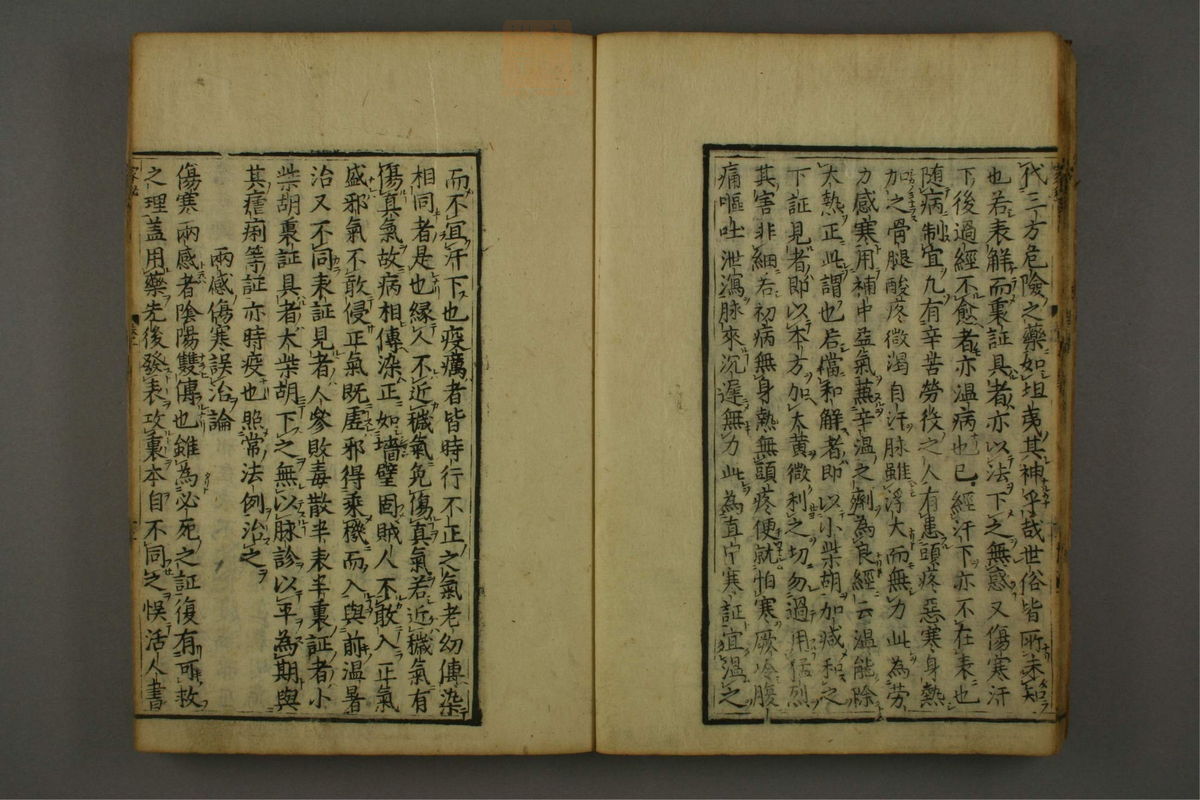 代三方危險之藥如坦夷其神乎哉世俗皆所未知
也若表解而裏証具者亦以法下之無惑又傷寒汗
下後過經不愈者亦温病也已經汗下亦不在表也
随病制宜九有辛苦勞役之人有患頭疼惡寒身熱
加之骨腿酸疼微渴自汗脉雖浮大而無力此為劳
力感寒用補中益氣蒹辛温之劑為良經云温能除
大熱正此謂也若當和解者即以小柴胡加减和之
下証見者即以本方加大黄微利之切勿過用猛烈
其害非細若初病無身熱無頭疼便就怕寒厥冷腹
痛嘔吐泄瀉脉來沉遲無力此為直中寒証宜温之
而不宜汗下也疫癘者皆時行不正之氣老幼傳染
相同者是也縁人不近穢氣免傷真氣若近穢氣有
傷真氣故病相傳染正如墻壁固賊人不敢入正氣
盛邪氣不敢侵正氣既虚邪得乘機而入與前温暑
治又不同表証見者人參敗毒散半表半裏証者小
柴胡裏証具者大柴胡下之無以脉診以平為期與
其瘧痢等証亦時疫也照常法例治之
兩感傷寒誤治論
傷寒兩感者陰陽雙傳也雖為必死之証復有可救
之理盖用藥先後發表攻裏本自不同之悞活人書